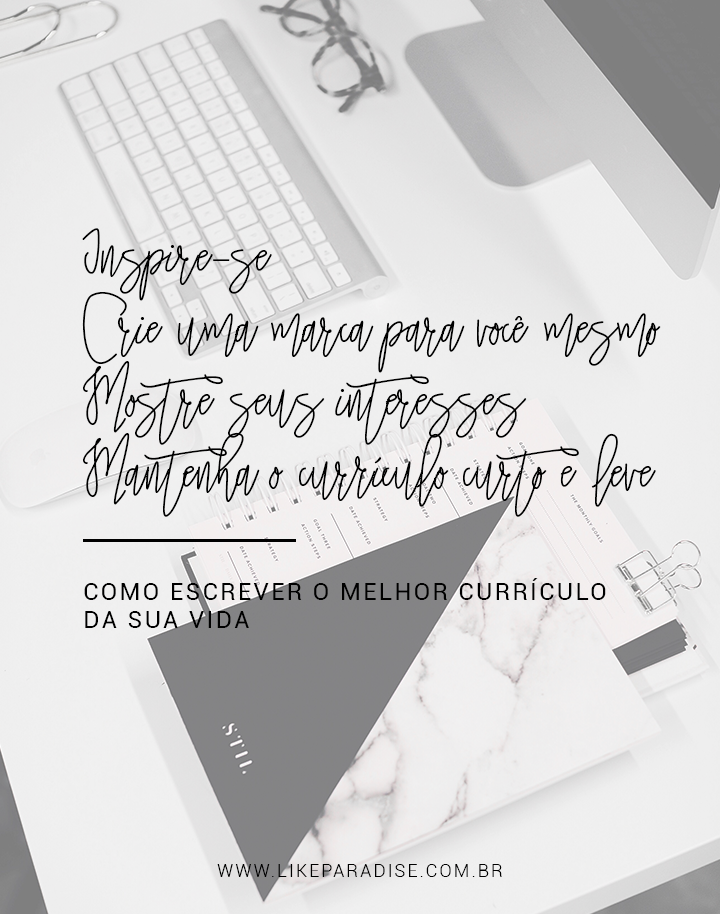 Inspire-se
Crie uma marca para você mesmo
Mostre seus interesses
Mantenha o currículo curto e leve
COMO ESCREVER O MELHOR CURRÍCULO
DA SUA VIDA
STIL
WWW.LIKEPARADISE.COM.BR